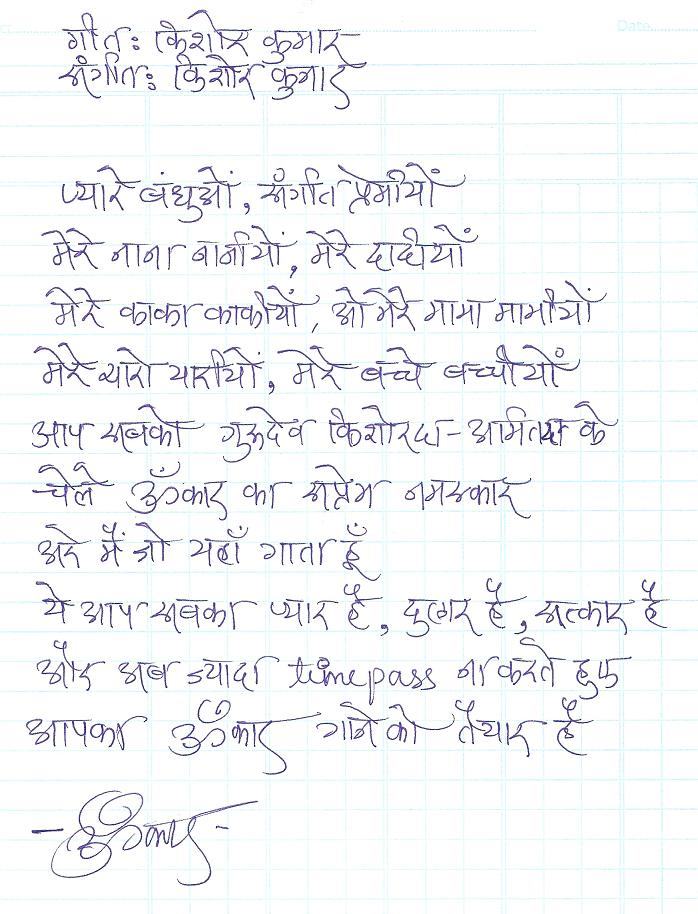 Date
गीत: किशोर कुमार
संगीत: किशोर कुमार
प्यारे बंधुओं, संगीत प्रेमीयों
मेरे नाना नानीयों, मेरे दादीयों
मेरे काका काकीयों, ओ मेरे मामा मामीयों
मेरे यारो यारीयों, मेरे बच्चे बच्चीयों
आप सबको गुरुदेव किशोरदा-अमितदा के
चेले ॐकार का सप्रेम नमस्कार
अरे मैं जो यहाँ गाता हूँ
ये आप सबका प्यार है, दुलार है, सत्कार है
और अब ज्यादा timepass ना करते हुए
आपका ॐकार गाने को तैयार है
- ॐकार -